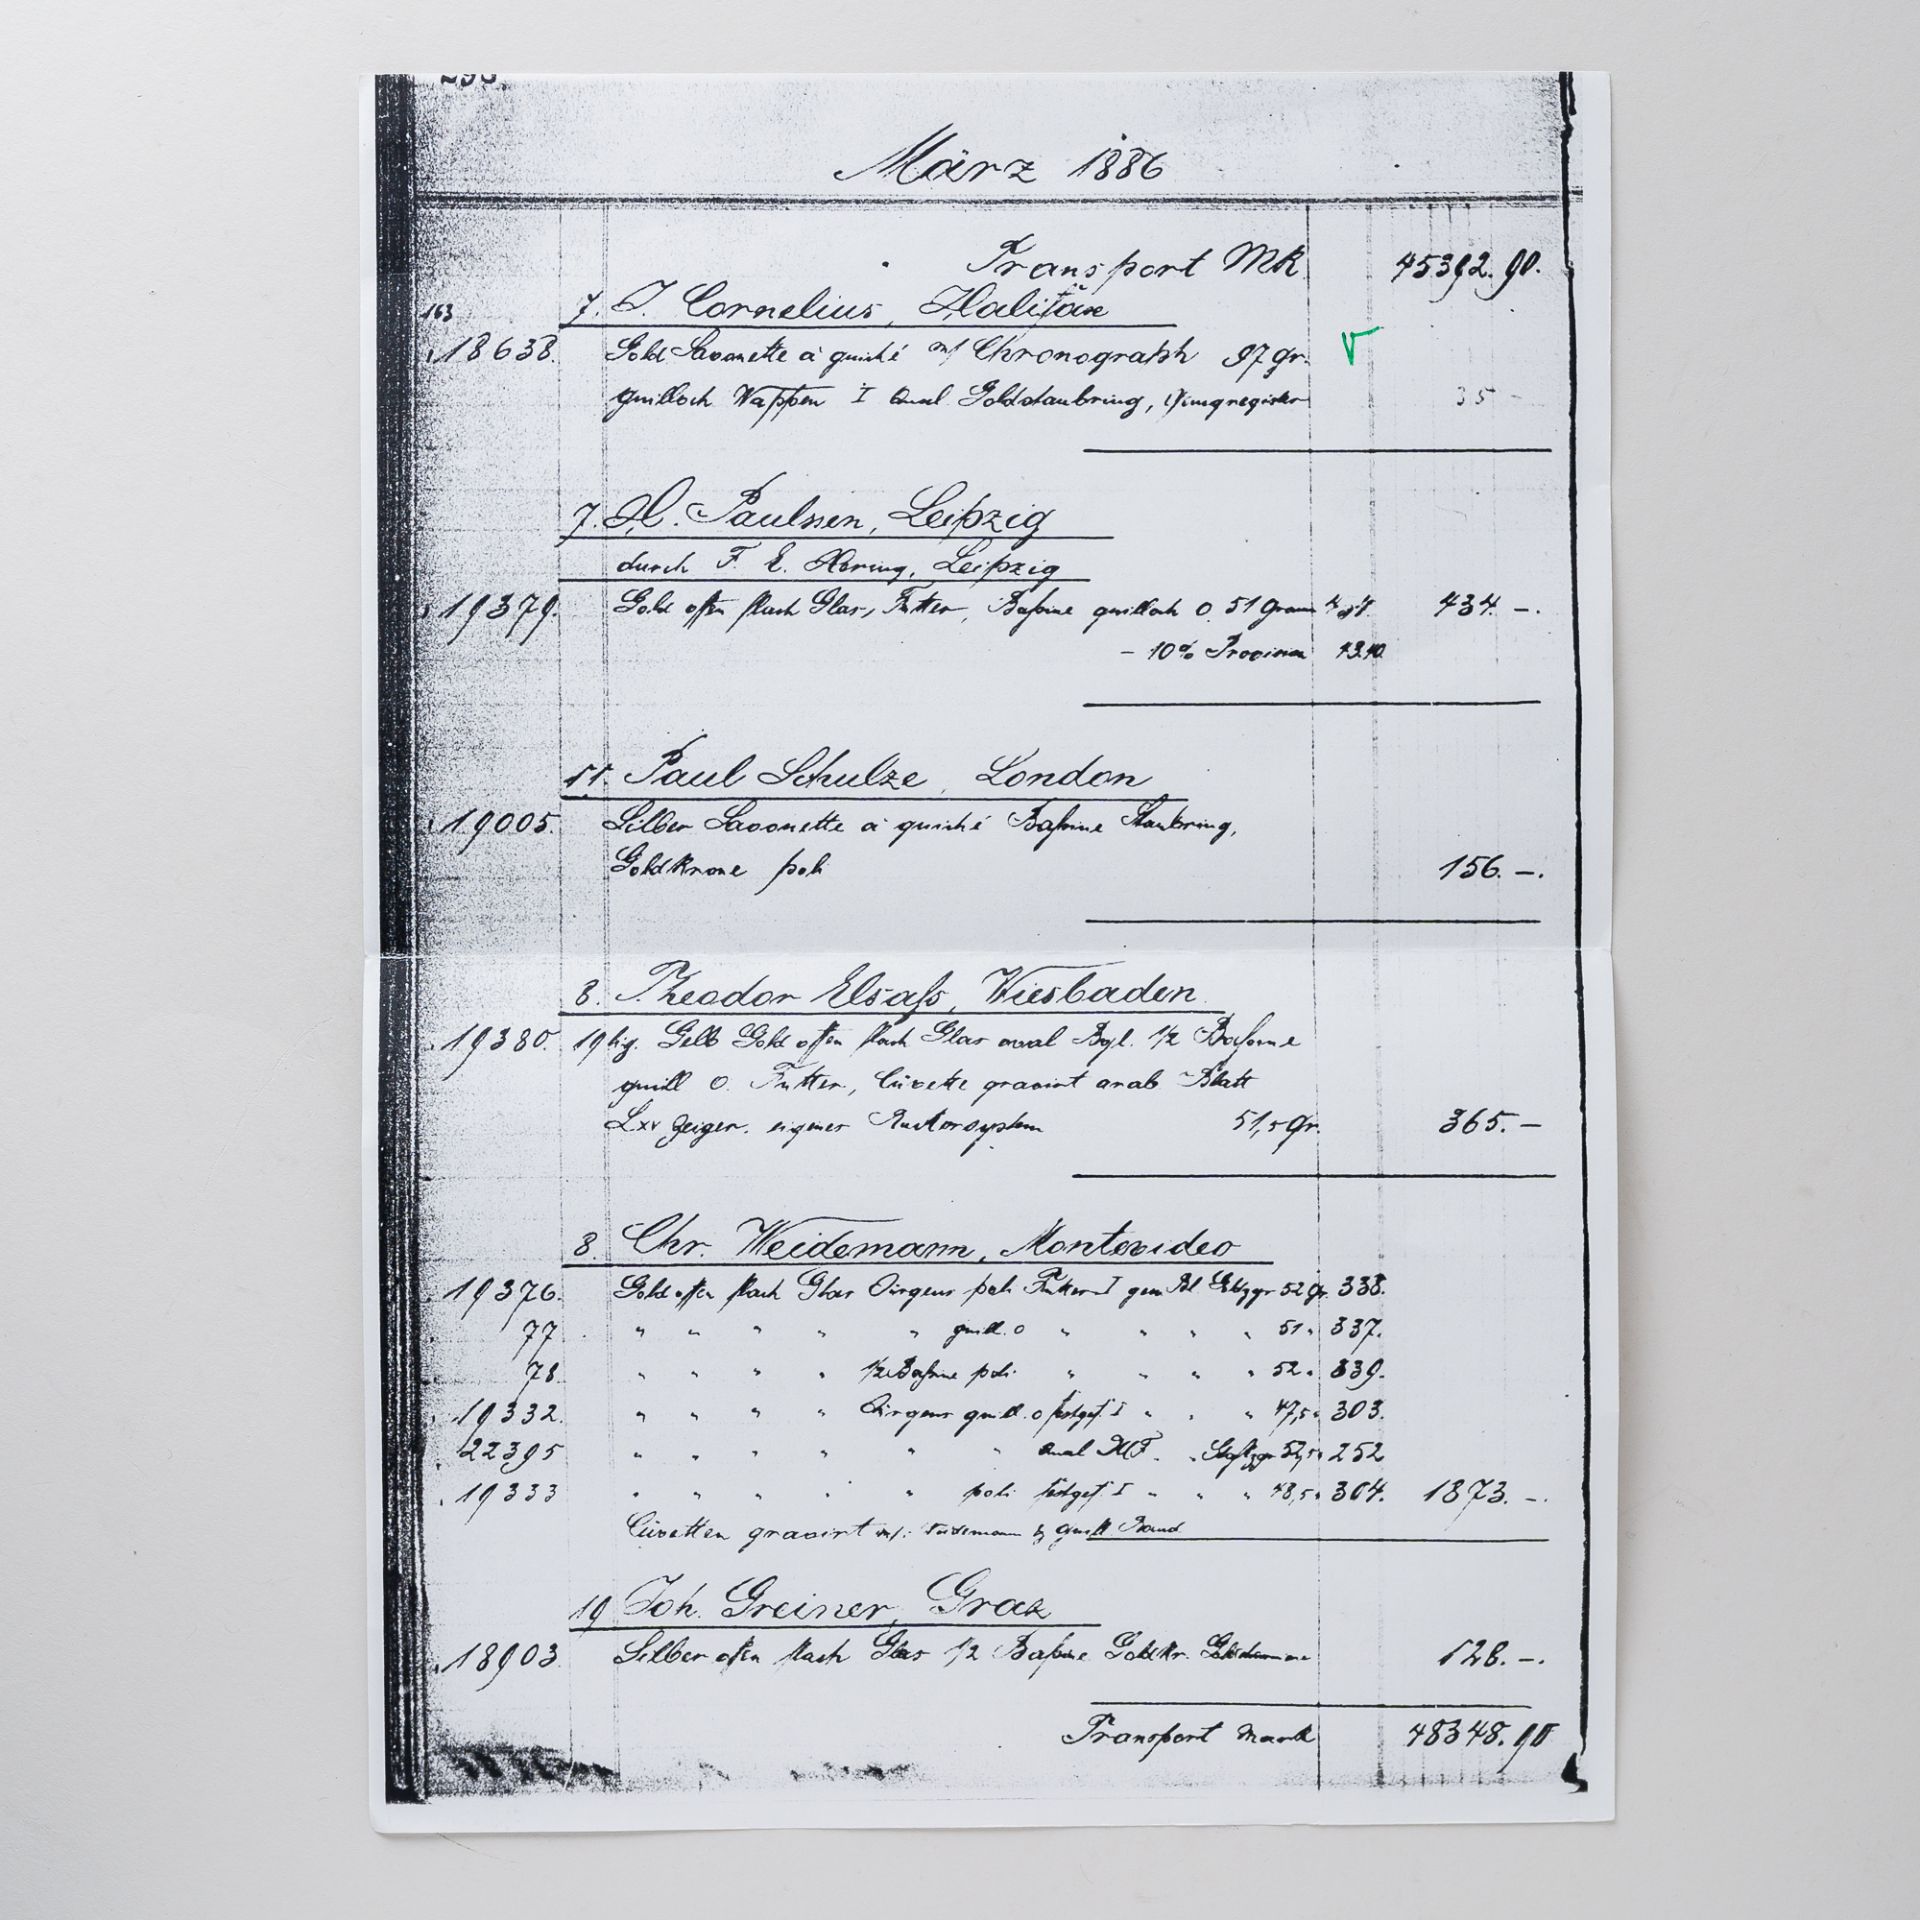 März 1886
Transport Mk 45392.90.
163 7. J. Cornelius, Halifax
18638. Gold Savonette à guiché m/ Chronograph 97 gr.
guilloch Wappen I Qual. Goldstaubring,
7. H. Paulssen, Leipzig
durch F. E. Hering, Leipzig
19379. Gold offen flach Glas, Futter, Bassine guilloch O. 51 Gramm 434. –.
– 10% Provision 43.40
11. Paul Schulze, London
19005. Silber Savonette à guiché Bassine Staubring,
Goldkrone poli 156. –.
8. Theodor Elsass, Wiesbaden
19380. 19lig. Gelb Gold offen flach Glas oval Bgl. 1/2 Bassine
guill O. Futter, Cüvette gravirt arab Blatt
Lxv Zeiger. eigenes 51,5 gr. 365. –
8. Chr. Weidemann, Montevideo
19376. Gold offen flach Glas poli Futter I 52 gr. 338.
77 " " " " " guill. O " " " " 51 " 337.
78. " " " " 1/2 Bassine poli " " " " 52 " 339.
19332. " " " " guill. O I " " " 47,5 " 303.
22395 " " " " " " 52,5 " 252
19333 " " " " " poli I " " " 48,5 " 304. 1873. –.
Cüvetten gravirt m/: Weidemann guill. Band
19 Joh. Greiner, Graz
18903 Silber offen flach Glas 1/2 Bassine Goldkr. 128. –.
Transport Mark 48348.90